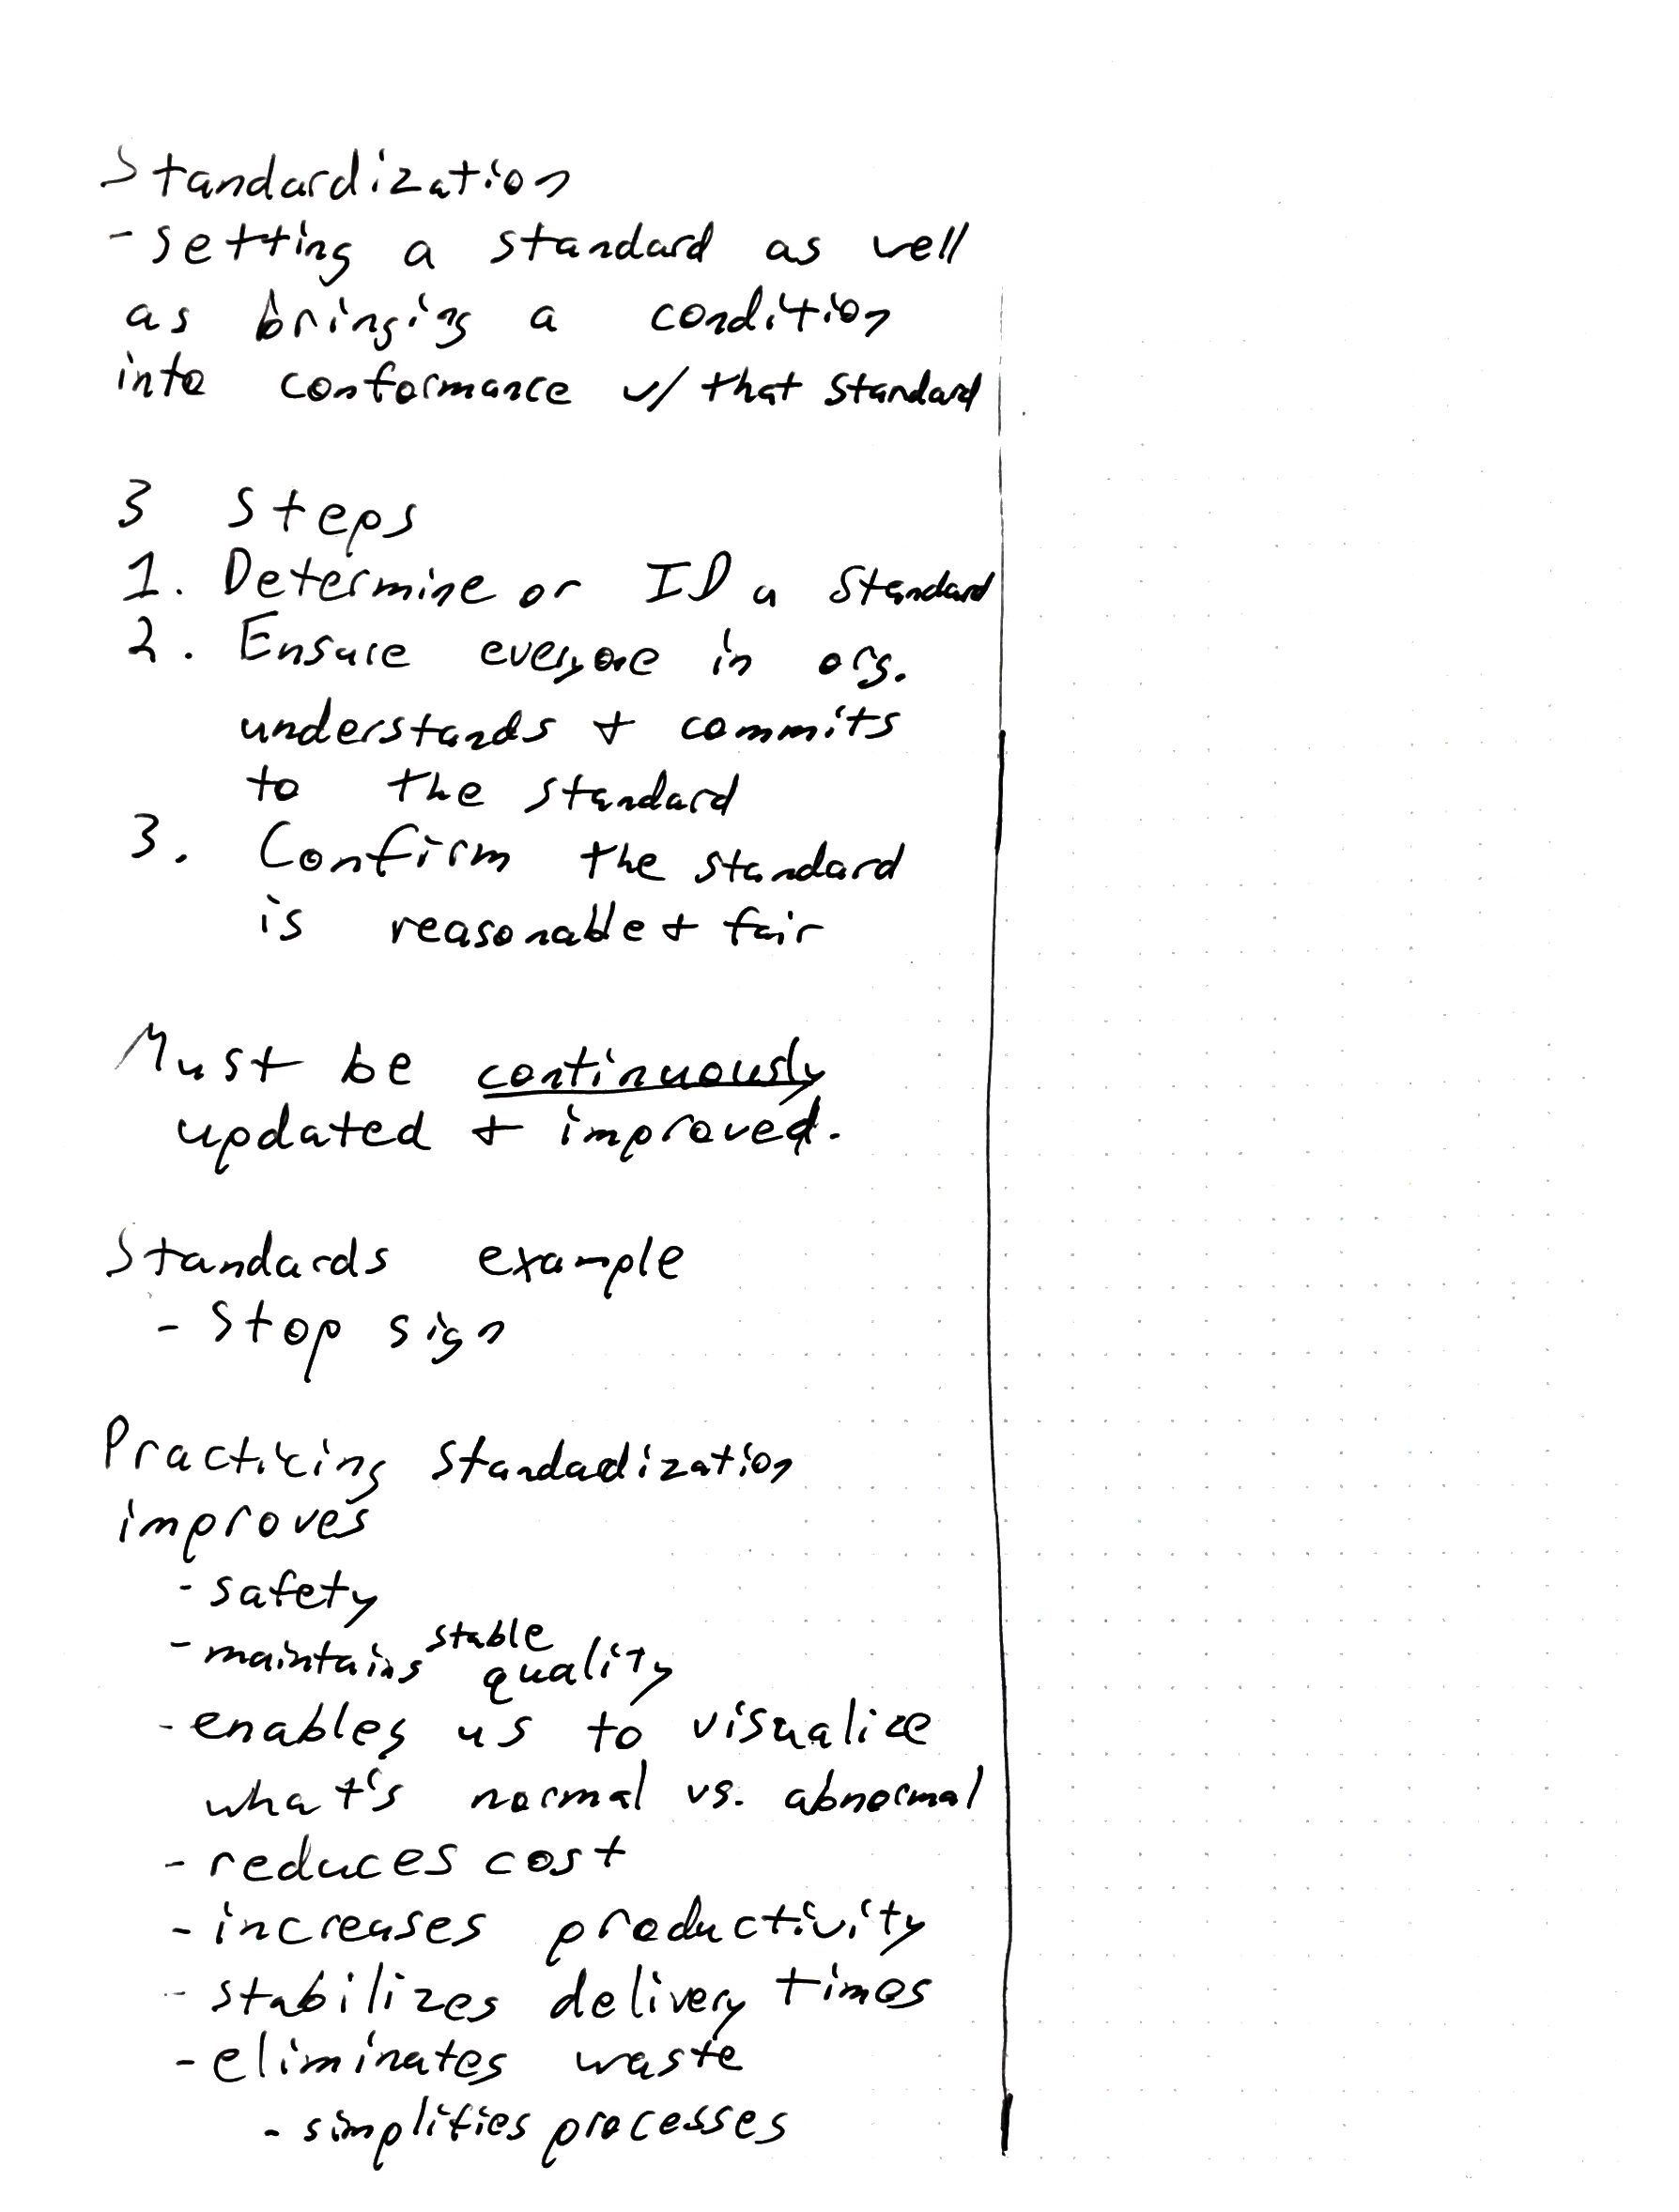 Standardization
- setting a standard as well
as bringing a condition
into conformance w/ that standard
3 Steps
1. Determine or ID a standard
2. Ensure everyone in org.
understands + commits
to the standard
3. Confirm the standard
is reasonable + fair
Must be continuously
updated + improved.
Standards example
- Stop sign
Practicing standadization
improves
- safety
- maintains stable quality
- enables us to visualize
what's normal vs. abnormal
- reduces cost
- increases productivity
- stabilizes delivery times
- eliminates waste
- simplifies processes